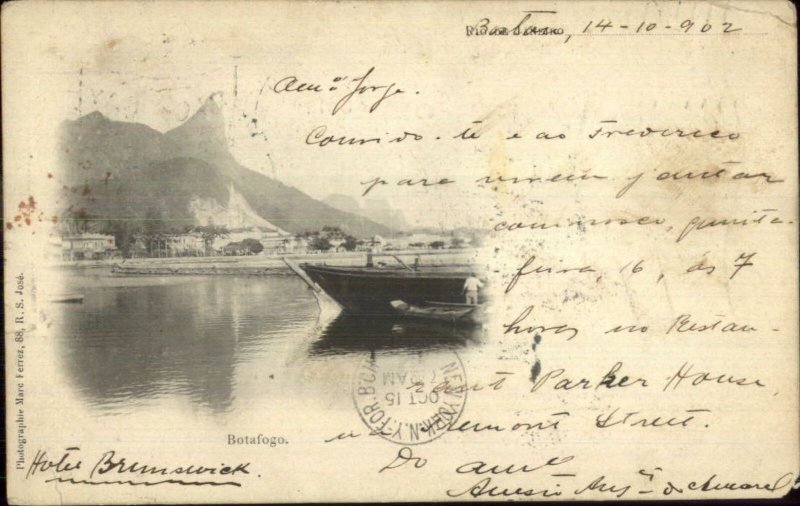 Boston, 14-10-902
RIO DE JANEIRO
Amº Jorge.
Convido-te e ao Frederico
para virem jantar
comnosco, quinta-
feira, 16, ás 7
horas no Restau-
rant Parker House,
Tremont Street.
Do amº
de Amaral
Hotel Brunswick.
Botafogo.
Photographie Marc Ferrez, 88, R. S. José.
NEW YORK, N.Y. FOR. BCH
OCT 15
AM